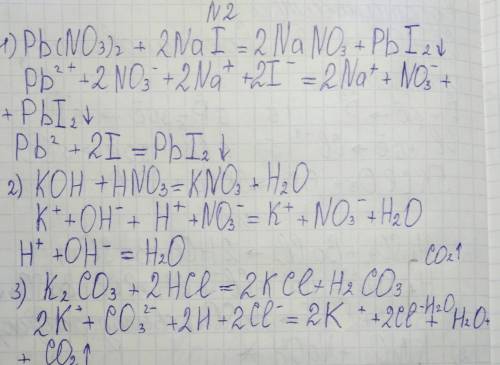 N2
1) Pb(NO₃)₂ + 2NaI = 2NaNO₃ + PbI₂↓
Pb²⁺ + 2NO₃⁻ + 2Na⁺ + 2I⁻ = 2Na⁺ + NO₃⁻ +
+ PbI₂↓
Pb² + 2I = PbI₂↓
2) KOH + HNO₃ = KNO₃ + H₂O
K⁺ + OH⁻ + H⁺ + NO₃⁻ = K⁺ + NO₃⁻ + H₂O
H⁺ + OH⁻ = H₂O
CO₂↑
3) K₂CO₃ + 2HCl = 2KCl + H₂CO₃
H₂O
2K⁺ + CO₃²⁻ + 2H + 2Cl⁻ = 2K⁺ + 2Cl⁻ + H₂O +
+ CO₂↑